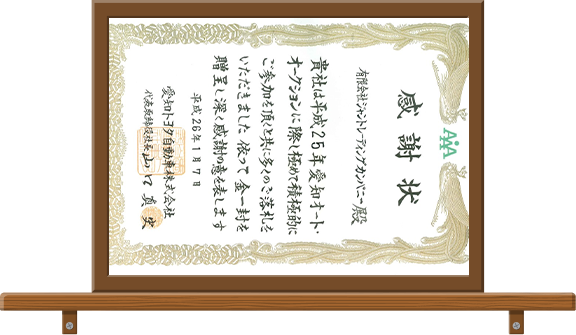 AAA
感謝状
有限会社ジャントレーディングカンパニー殿
貴社は平成25年愛知オート・
オークションに際し極めて積極的に
ご参加を頂くと共に多くのご落札を
いただきました 依って金一封を
贈呈し深く感謝の意を表します
平成26年1月7日
愛知トヨタ自動車株式会社
代表取締役社長 山口真史